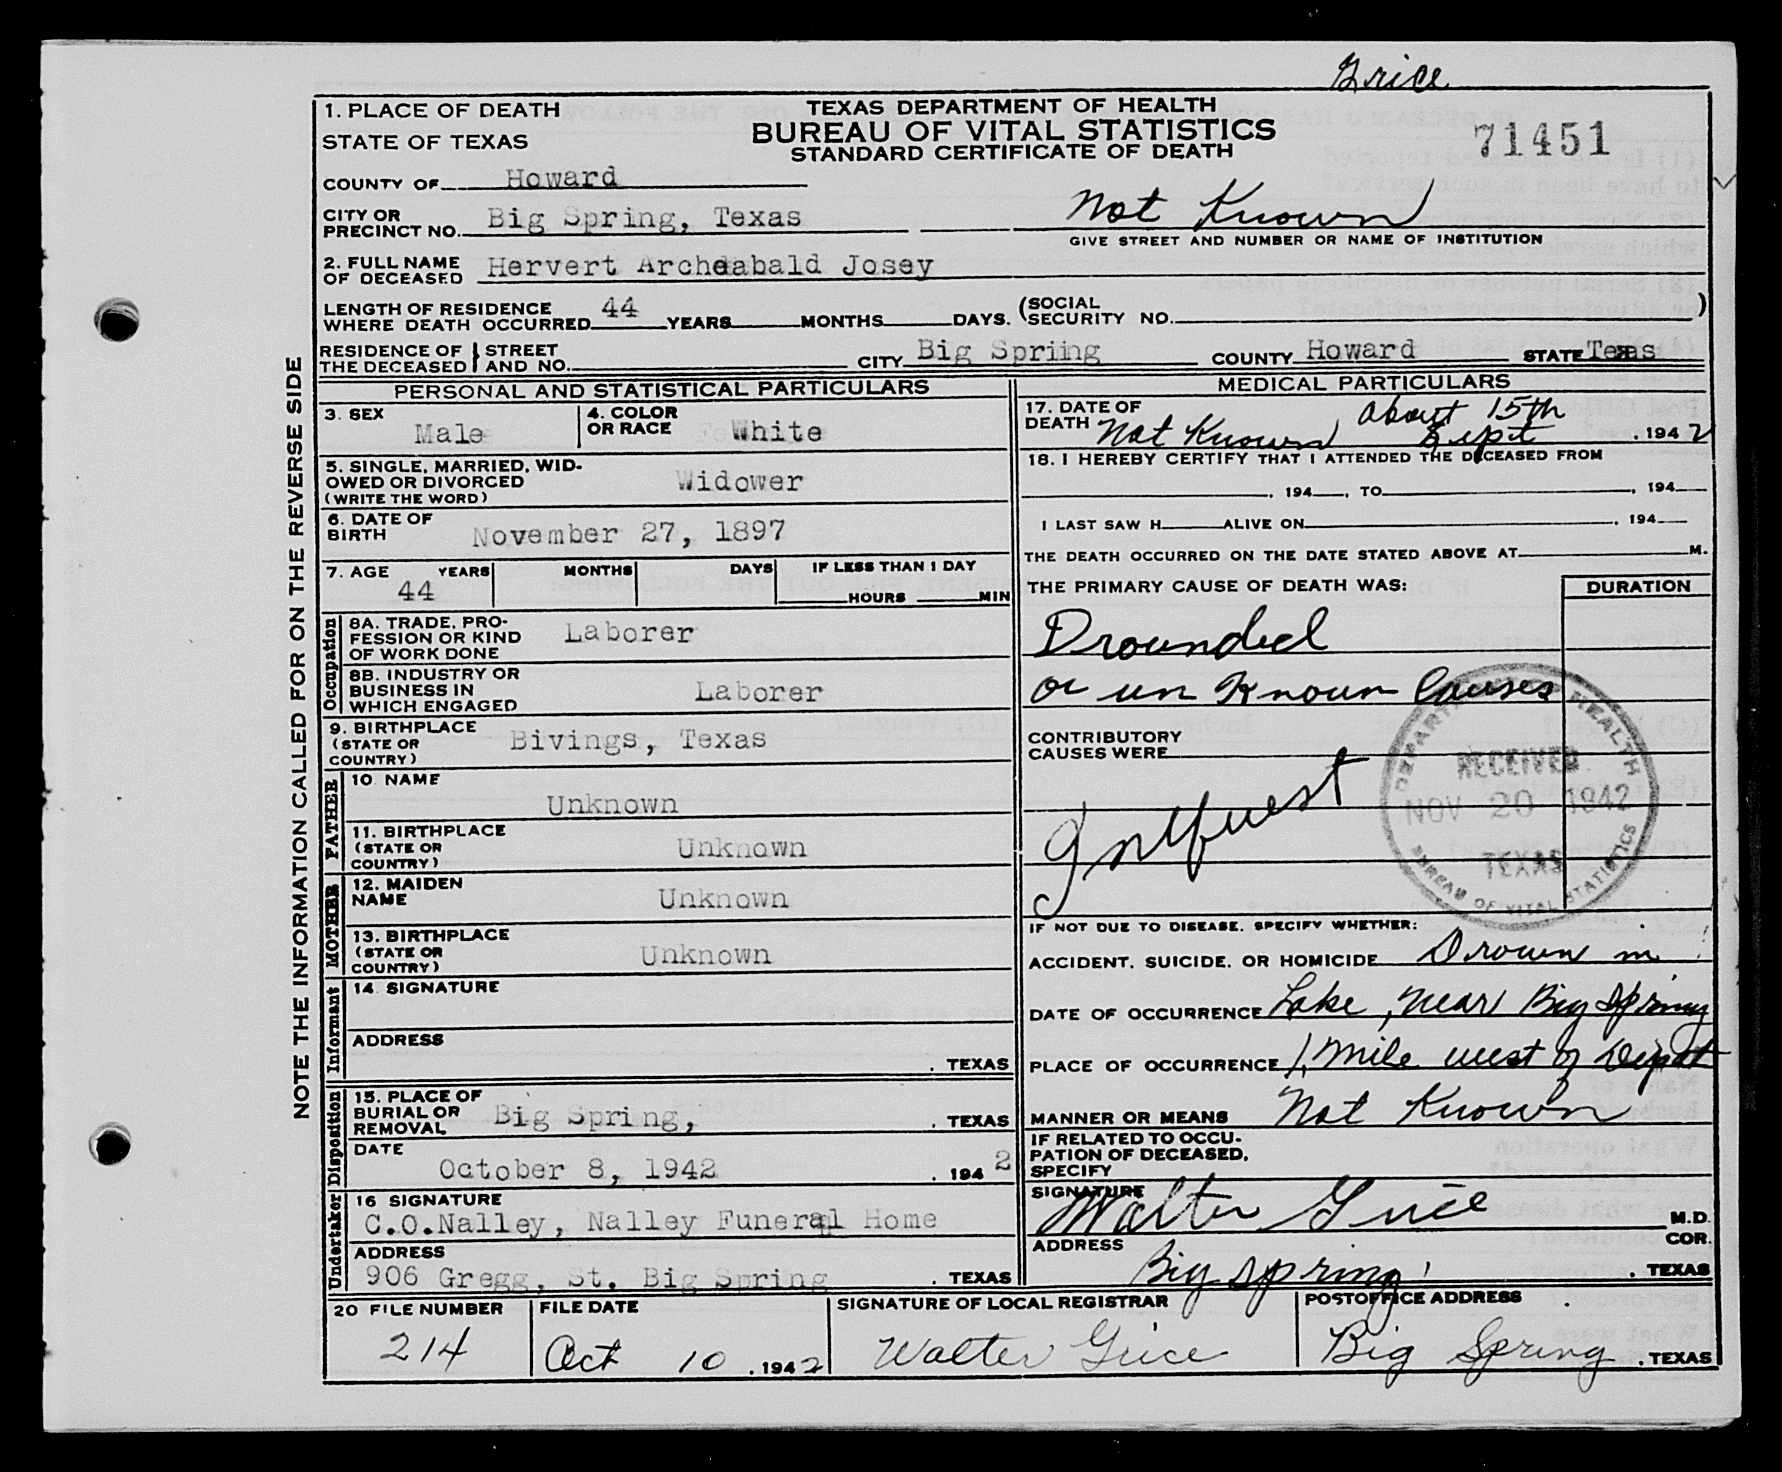 Grice
1. PLACE OF DEATH
STATE OF TEXAS
TEXAS DEPARTMENT OF HEALTH
BUREAU OF VITAL STATISTICS
STANDARD CERTIFICATE OF DEATH
71451
COUNTY OF Howard
CITY OR PRECINCT NO. Big Spring, Texas
Not Known
GIVE STREET AND NUMBER OR NAME OF INSTITUTION
2. FULL NAME OF DECEASED Hervert Archeabald Josey
LENGTH OF RESIDENCE WHERE DEATH OCCURRED 44 YEARS MONTHS DAYS. (SOCIAL SECURITY NO. )
RESIDENCE OF THE DECEASED STREET AND NO. CITY Big Spriing COUNTY Howard STATE Texas
NOTE THE INFORMATION CALLED FOR ON THE REVERSE SIDE
PERSONAL AND STATISTICAL PARTICULARS
3. SEX Male
4. COLOR OR RACE White
5. SINGLE, MARRIED, WID-
OWED OR DIVORCED Widower
(WRITE THE WORD)
6. DATE OF BIRTH November 27, 1897
7. AGE YEARS MONTHS DAYS IF LESS THAN 1 DAY
44 HOURS MIN
Occupation
8A. TRADE, PRO-
FESSION OR KIND Laborer
OF WORK DONE
8B. INDUSTRY OR
BUSINESS IN Laborer
WHICH ENGAGED
9. BIRTHPLACE
(STATE OR Bivings, Texas
COUNTRY)
FATHER
10 NAME
Unknown
11. BIRTHPLACE
(STATE OR Unknown
COUNTRY)
MOTHER
12. MAIDEN
NAME Unknown
13. BIRTHPLACE
(STATE OR Unknown
COUNTRY)
Informant
14 SIGNATURE
ADDRESS
. TEXAS
Disposition
15. PLACE OF
BURIAL OR Big Spring, . TEXAS
REMOVAL
DATE
October 8, 1942 . 194 2
Undertaker
16 SIGNATURE
C.O.Nalley, Nalley Funeral Home
ADDRESS
906 Gregg, St. Big Spring . TEXAS
MEDICAL PARTICULARS
17. DATE OF about 15th
DEATH Not Known Sept . 194 2
18. I HEREBY CERTIFY THAT I ATTENDED THE DECEASED FROM
, 194 , TO , 194
I LAST SAW H ALIVE ON , 194
THE DEATH OCCURRED ON THE DATE STATED ABOVE AT M.
THE PRIMARY CAUSE OF DEATH WAS: DURATION
Drounded
or unKnoun Causes
CONTRIBUTORY
CAUSES WERE
Inquest
DEPARTMENT OF HEALTH
RECEIVED
NOV 20 1942
TEXAS
BUREAU OF VITAL STATISTICS
IF NOT DUE TO DISEASE, SPECIFY WHETHER:
ACCIDENT, SUICIDE, OR HOMICIDE Drown in
DATE OF OCCURRENCE Lake, near Big Spring
PLACE OF OCCURRENCE 1, mile west of Depot
MANNER OR MEANS Not Known
IF RELATED TO OCCU-
PATION OF DECEASED,
SPECIFY
SIGNATURE Walter Grice M.D.
COR.
ADDRESS Big Spring . TEXAS
20 FILE NUMBER FILE DATE SIGNATURE OF LOCAL REGISTRAR POSTOFFICE ADDRESS
214 Oct 10 , 1942 Walter Grice Big Spring . TEXAS